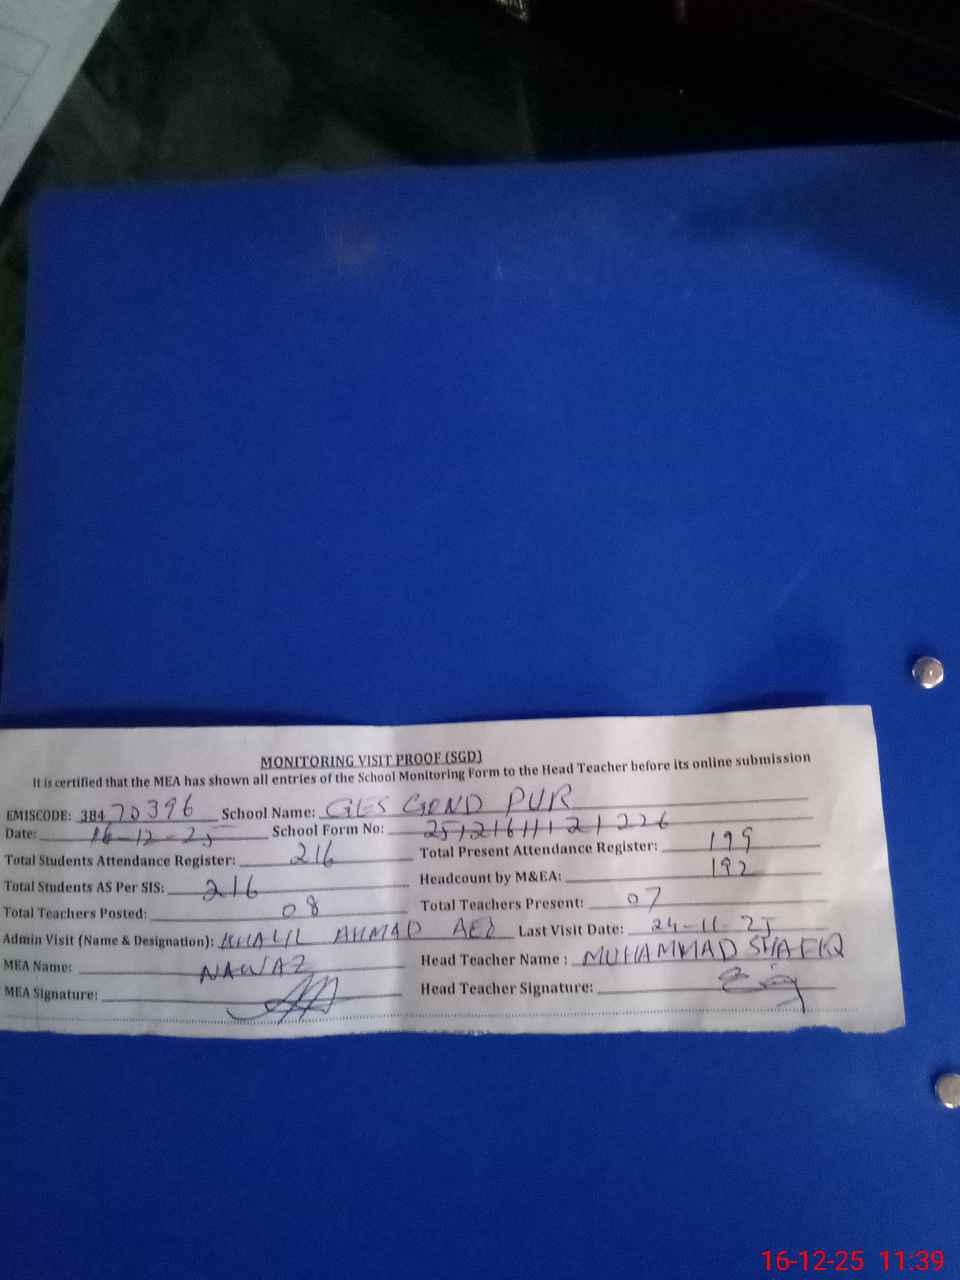 MONITORING VISIT PROOF (SGD)
It is certified that the MEA has shown all entries of the School Monitoring Form to the Head Teacher before its online submission
EMISCODE: 38470396 School Name: GES GOND PUR
Date: 16-12-25 School Form No: 25121611121226
Total Students Attendance Register: 216 Total Present Attendance Register: 199
Total Students AS Per SIS: 216 Headcount by M&EA: 192
Total Teachers Posted: 08 Total Teachers Present: 07
Admin Visit (Name & Designation): KHALIL AHMAD AEO Last Visit Date: 24-11-25
MEA Name: NAWAZ Head Teacher Name : MUHAMMAD SHAFIQ
MEA Signature: Head Teacher Signature:
16-12-25 11:39